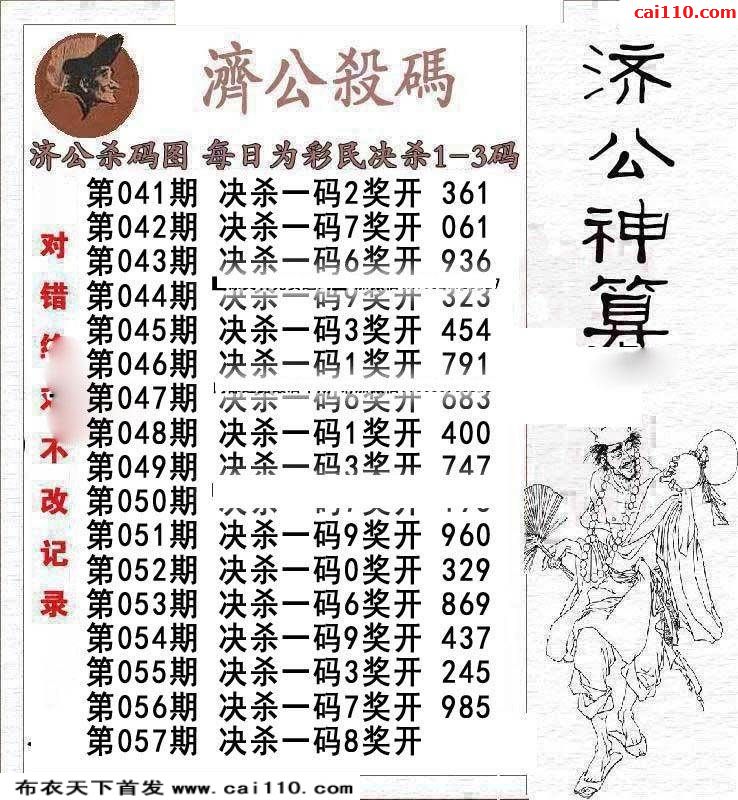 cai110.com
濟公殺碼
济公杀码图 每日为彩民决杀1-3码
第041期 决杀一码2奖开 361
第042期 决杀一码7奖开 061
第043期 决杀一码6奖开 936
第044期 决杀一码9奖开 323
第045期 决杀一码3奖开 454
第046期 决杀一码1奖开 791
第047期 决杀一码6奖开 683
第048期 决杀一码1奖开 400
第049期 决杀一码3奖开 747
第050期
第051期 决杀一码9奖开 960
第052期 决杀一码0奖开 329
第053期 决杀一码6奖开 869
第054期 决杀一码9奖开 437
第055期 决杀一码3奖开 245
第056期 决杀一码7奖开 985
第057期 决杀一码8奖开
对错
不改记录
济公神算
布衣天下首发 www.cai110.com